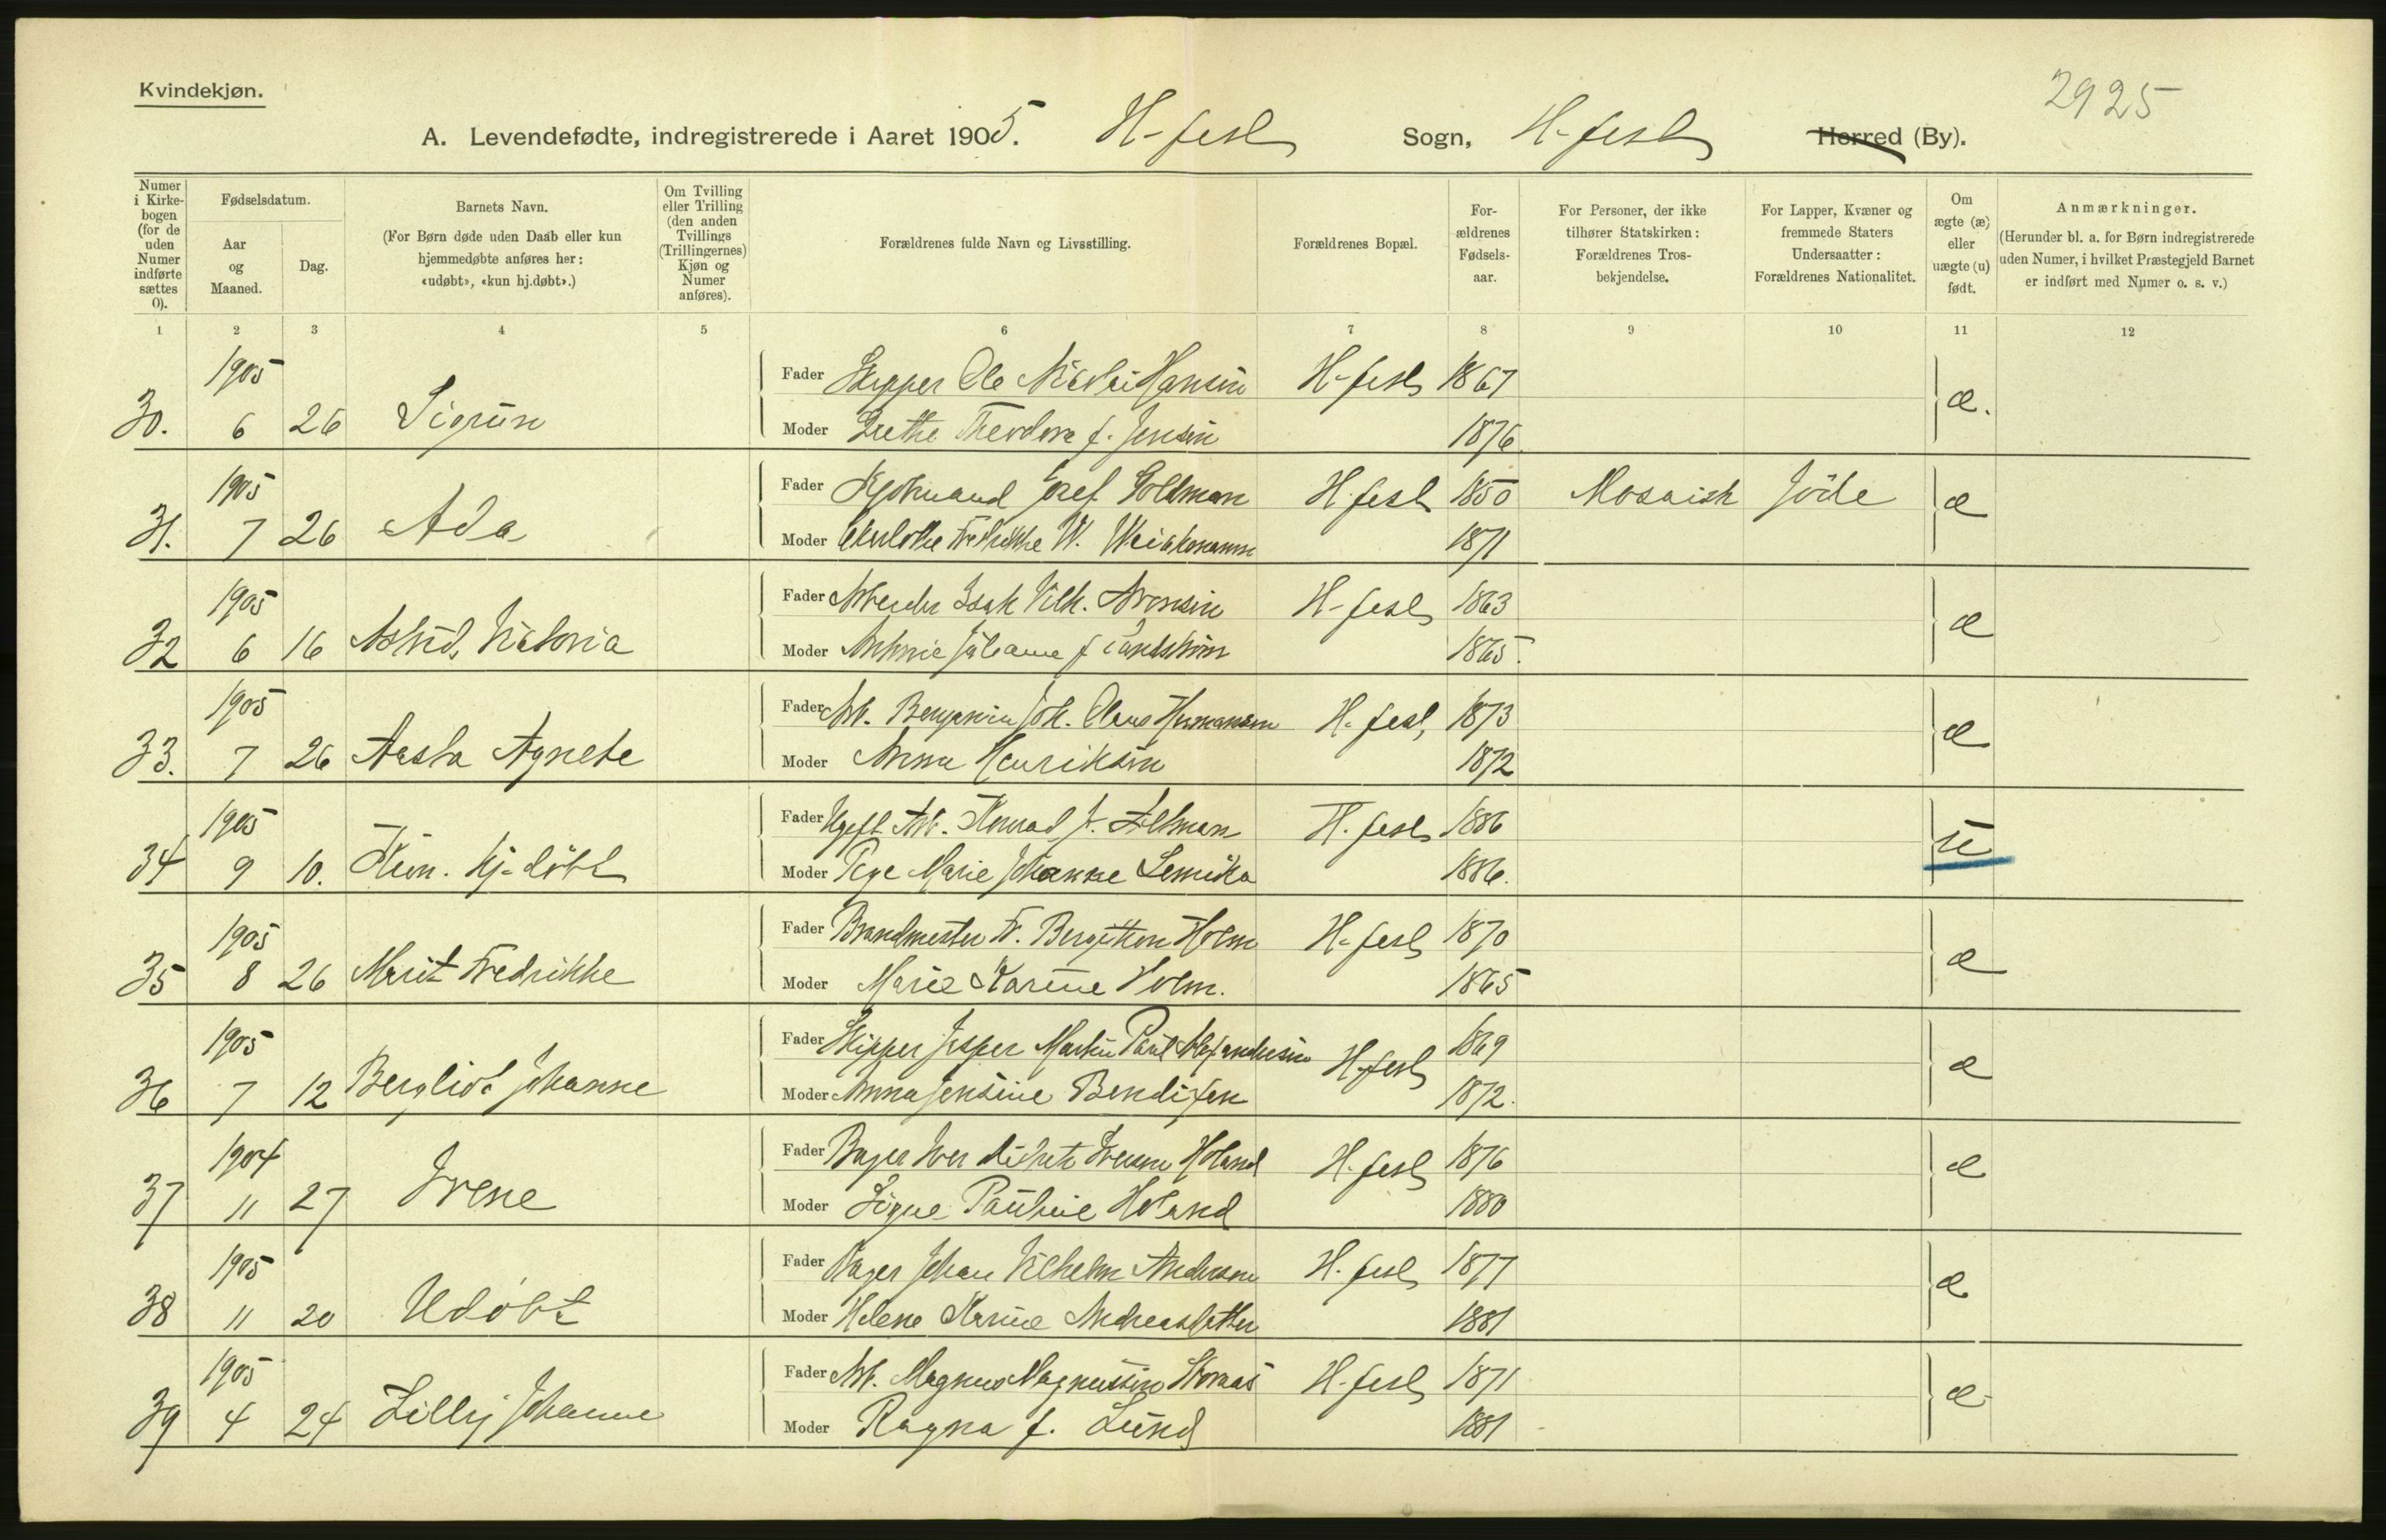 Kvindekjøn.
2925
A. Levendefødte, indregistrerede i Aaret 1905. H-fest Sogn, H-fest Herred (By).
Numer i Kirkebogen (for de uden Numer indførte sættes 0).
Fødselsdatum.
Aar og Maaned.
Dag.
Barnets Navn.
(For Børn døde uden Daab eller kun hjemmedøbte anføres her: «udøbt», «kun hj.døbt».)
Om Tvilling eller Trilling (den anden Tvillings (Trillingernes) Kjøn og Numer anføres).
Forældrenes fulde Navn og Livsstilling.
Forældrenes Bopæl.
For-ældrenes Fødsels-aar.
For Personer, der ikke tilhører Statskirken: Forældrenes Tros-bekjendelse.
For Lapper, Kvæner og fremmede Staters Undersaatter: Forældrenes Nationalitet.
Om ægte (æ) eller uægte (u) født.
Anmærkninger.
(Herunder bl. a. for Børn indregistrerede uden Numer, i hvilket Præstegjeld Barnet er indført med Numer o. s. v.)
1 2 3 4 5 6 7 8 9 10 11 12
1905
Fader Skipper Ole Nikolai Hansen H-fest 1867
30. 6 26 Sigrun æ.
Moder Grethe Theodora f. Jensen 1876.
1905
Fader Kjøbmand Josef Goldman H.fest 1850 Mosaisk Jøde
31. 7 26 Ada æ
Moder Fredrikke W. 1871
1905
Fader Arbeider Isak Vilh. Aronsen H-fest 1863
32 6 16 Astrid, Viktoria æ
Moder Juliane f 1865.
1905
Fader Arb. Benjamin Joh. Olaus Hermansen H-fest, 1873
33. 7 26 Aasta Agnete æ
Moder Anna Henriksen 1872
1905
Fader Ugift Arb. Konrad J. H. fest 1886
34 9 10. Kun. hj-døbt u
Moder Pige Marie Johanne 1886.
1905
Fader Brandmester Fr. Bergithon Holm H-fest 1870
35 8 26 Marit Fredrikke æ
Moder Marie Karine Holm. 1865
1905
Fader Skipper Jesper Martin Paul Alexandersen H-fest 1869
36 7 12 Bergliot Johanne æ
Moder Anna Jensine Bendixen 1872.
1904
Fader Bager Iver Holand H-fest 1876
37 11 27 Irene æ
Moder Signe Pauline Holand 1880
1905
Fader Bager Johan Vilhelm Andersen H. fest 1877
38 11 20 Udøbt æ
Moder Helene Karine Andreasdatter 1881
1905
Fader Arb. Magnus Magnussen H-fest 1871
39 4 24 Lilly Johanne æ
Moder Ragna f. Lund 1881